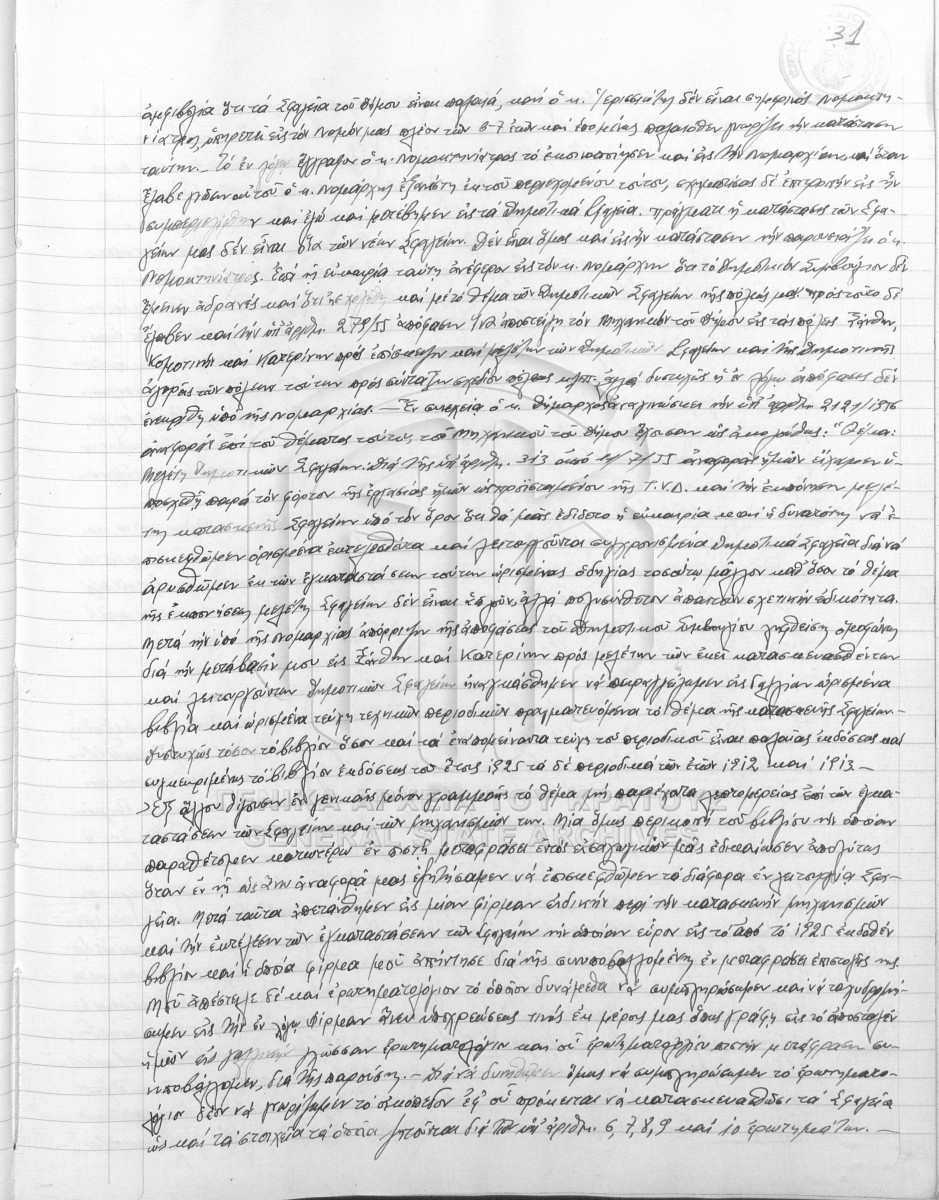 31
ἀμφιβολία ὅτι τά Σφαγεῖα τοῦ Δήμου εἶναι παλαιά, καί ὁ κ. δέν εἶναι σημερινός Νομοκτη-
νίατρος, ὑπηρετεῖ εἰς τόν Νομόν μας πλέον τῶν 6-7 ἐτῶν καί ἑπομένως παλαιόθεν γνωρίζει τήν κατάστασιν
ταύτην.— Τό ἐν λόγῳ ἔγγραφον ὁ κ. Νομοκτηνίατρος τό ἐκοινοποίησεν καί εἰς τήν Νομαρχίαν, καί ὅταν
ἔλαβε γνῶσιν αὐτοῦ ὁ κ. Νομάρχης ἐξανέστη ἐκ τοῦ περιεχομένου τούτου, σχηματίσας δέ ἐπιτροπήν εἰς ἥν
συμπεριελήφθην καί ἐγώ καί μετέβημεν εἰς τά Δημοτικά Σφαγεῖα. Πράγματι ἡ κατάστασις τῶν Σφα-
γείων μας δέν εἶναι οἵα τῶν νέων Σφαγείων. Δέν εἶναι ὅμως καί εἰς ἥν κατάστασιν τήν παρουσιάζει ὁ κ.
Νομοκτηνίατρος. Ἐπί τῇ εὐκαιρίᾳ ταύτῃ ἀνέφερον εἰς τόν κ. Νομάρχην ὅτι τό Δημοτικόν Συμβούλιον δέν
ἔμεινεν ἀδρανές καί ὅτι ἠσχολήθη καί μέ τό θέμα τῶν Δημοτικῶν Σφαγείων τῆς πόλεώς μας πρός τοῦτο δέ
ἔλαβεν καί τήν ὑπ' ἀριθμ. 279/55 ἀπόφασιν ἵνα ἀποστείλῃ τόν Μηχανικόν τοῦ Δήμου εἰς τάς πόλεις Ξάνθην,
Κομοτινήν καί Κατερίνην πρός ἐπίσκεψιν καί μελέτην τῶν Δημοτικῶν Σφαγείων καί τῆς Δημοτικῆς
ἀγορᾶς τῶν πόλεων τούτων πρός σύνταξιν σχεδίου πόλεως κ.λ.π. ἀλλά δυστυχῶς ἡ ἐν λόγῳ ἀπόφασις δέν
ἐνεκρίθη ὑπό τῆς Νομαρχίας.— Ἐν συνεχείᾳ ὁ κ. Δήμαρχος ἀναγινώσκει τήν ὑπ' ἀριθμ. 2121/1956
ἀναφοράν ἐπί τοῦ θέματος τούτου, τοῦ Μηχανικοῦ τοῦ Δήμου ἔχουσαν ὡς ἀκολούθως: "Θέμα:
Μελέτη Δημοτικῶν Σφαγείων. Διά τῆς ὑπ' ἀριθμ. 313 ἀπό /7/55 ἀναφορᾶς ἡμῶν εἴχομεν ὑ-
ποσχεθῆ παρά τόν φόρτον τῆς ἐργασίας ἡμῶν ὡς προϊσταμένου τῆς Τ.Υ.Δ. καί τήν ἐκπόνησιν μελέ-
της κατασκευῆς Σφαγείων ὑπό τόν ὅρον ὅτι θά μᾶς ἐδίδετο ἡ εὐκαιρία καί ἡ δυνατότης νά ἐ-
πισκεφθῶμεν ὡρισμένα ἐκτελεσθέντα καί λειτουργοῦντα συγχρονισμένα Δημοτικά Σφαγεῖα διά νά
ἀρυσθῶμεν ἐκ τῶν ἐγκαταστάσεων τούτων ὡρισμένας ὁδηγίας τοσούτῳ μᾶλλον καθ' ὅσον τό θέμα
τῆς ἐκπονήσεως μελέτης Σφαγείων δέν εἶναι ἁπλοῦν, ἀλλά πολυσύνθετον ἀπαιτοῦν σχετικήν εἰδικότητα.
Μετά τήν ὑπό τῆς Νομαρχίας ἀπόρριψιν τῆς ἀποφάσεως τοῦ Δημοτικοῦ Συμβουλίου ληφθείσης ὁμοφώνως
διά τήν μετάβασίν μου εἰς Ξάνθην καί Κατερίνην πρός μελέτην τῶν ἐκεῖ κατασκευασθέντων
καί λειτουργούντων Δημοτικῶν Σφαγείων ἠναγκάσθημεν νά παραγγείλωμεν εἰς Γαλλίαν ὡρισμένα
βιβλία καί ὡρισμένα τεύχη τεχνικῶν περιοδικῶν πραγματευόμενα τό θέμα τῆς κατασκευῆς Σφαγείων.—
Δυστυχῶς τόσον τό βιβλίον ὅσον καί τά ἐναπομείναντα τεύχη τοῦ περιοδικοῦ εἶναι παλαιᾶς ἐκδόσεως καί
συγκεκριμένως τό βιβλίον ἐκδόσεως τοῦ ἔτους 1925 τά δέ περιοδικά τῶν ἐτῶν 1912 καί 1913.—
Ἐξ ἄλλου θίγουσιν ἐν γενικαῖς μόνον γραμμαῖς τό θέμα μή παρέχοντα λεπτομερείας ἐπί τῶν ἐγκα-
ταστάσεων τῶν Σφαγείων καί τῶν μηχανισμῶν των. Μία ὅμως περικοπή τοῦ βιβλίου τήν ὁποίαν
παραθέτομεν κατωτέρω ἐν πιστῇ μεταφράσει ἐντός εἰσαγωγικῶν μᾶς ἐδικαίωσεν ἀπολύτως
ὅταν ἐν τῇ ὡς ἄνω ἀναφορᾷ μας ἐζητήσαμεν νά ἐπισκεφθῶμεν τά διάφορα ἐν λειτουργίᾳ Σφα-
γεῖα. Μετά ταῦτα ἀπετάθημεν εἰς μίαν φίρμαν εἰδικήν περί τήν κατασκευήν μηχανισμῶν
καί τήν ἐκτέλεσιν τῶν ἐγκαταστάσεων τῶν Σφαγείων τήν ὁποίαν εὗρον εἰς τό ἀπό τό 1925 ἐκδοθέν
βιβλίον καί ἡ ὁποία φίρμα μοῦ ἀπήντησε διά τῆς συνυποβαλλομένης ἐν μεταφράσει ἐπιστολῆς της.
Μοῦ ἀπέστειλε δέ καί ἐρωτηματολόγιον τό ὁποῖον δυνάμεθα νά συμπληρώσωμεν καί νά ταχυδρομή-
σωμεν εἰς τήν ἐν λόγῳ φίρμαν ἄνευ ὑποχρεώσεως τινός ἐκ μέρους μας ὅπως γράφῃ εἰς τό ἀποσταλέν
ἡμῖν εἰς γαλλικήν γλῶσσαν ἐρωτηματολόγιον καί οὗ ἐρωτηματολογίου πιστήν μετάφρασιν συ-
νυποβάλλομεν, διά τῆς παρούσης.— Διά νά δυνηθῶμεν ὅμως νά συμπληρώσωμεν τό ἐρωτηματο-
λόγιον δέον νά γνωρίζωμεν τό οἰκόπεδον ἐφ' οὗ πρόκειται νά κατασκευασθῶσι τά Σφαγεῖα
ὡς καί τά στοιχεῖα τά ὁποῖα ζητοῦνται διά τῶν ὑπ' ἀριθμ. 6, 7, 8, 9 καί 10 ἐρωτημάτων.—
ΓΕΝΙΚΑ ΑΡΧΕΙΑ ΤΟΥ ΚΡΑΤΟΥΣ
GENERAL STATE ARCHIVES